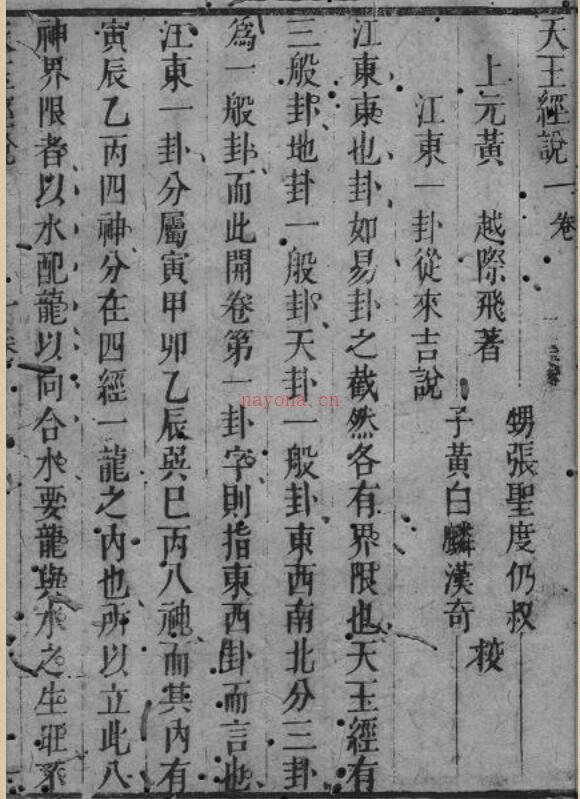 天玉經說一卷
上元黃　越際飛著
甥張聖度仍叔
子黃白麟漢奇
校
江東一卦從來吉說
江東東也卦如易卦之截然各有界限也天玉經有
三般卦地卦一般卦天卦一般卦東西南北分三卦
爲一般卦而此開卷第一卦字則指東西卦而言也
江東一卦分屬寅甲卯乙辰巽巳丙八神而其內有
寅辰乙丙四神分在四經一龍之內也所以立此八
神界限者以水配龍以向合水要龍與水之生旺不
nayona.cn